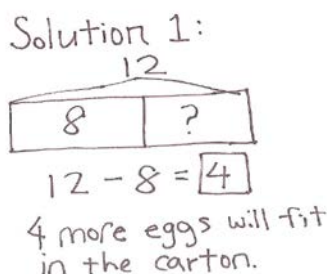 Solution 1:
12
8 ?
12 - 8 = 4
4 more eggs will fit
in the carton.